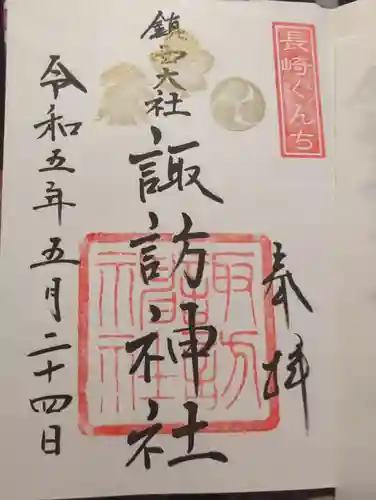 長崎くんち
奉拝
鎮西大社
諏訪神社
令和五年五月二十四日
諏訪神社